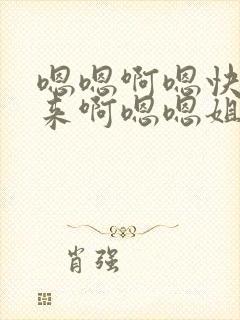 嗯嗯啊嗯快
来啊嗯嗯姐
肖强